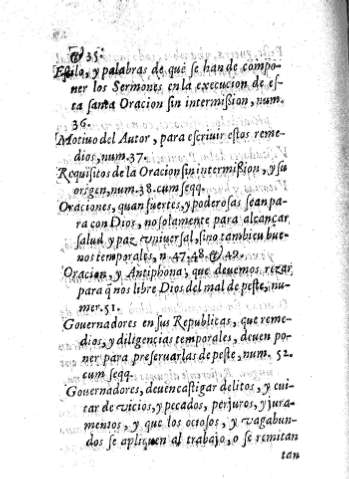 & 35.
Estilo, y palabras de que se han de compo-
ner los Sermones en la execucion de es-
ta santa Oracion sin intermißion, num.
36.
Motiuo del Autor, para escriuir estos reme-
dios, num. 37.
Requisitos de la Oracion sin intermißion, y su
origen, num. 38. cum seqq.
Oraciones, quan fuertes, y poderosas sean pa-
ra con Dios, no solamente para alcançar
salud y paz vniuersal, sino tambieu bue-
nos temporales, n. 47. 48. & 49.
Oracion, y Antiphona, que deuemos rezar
para q̃ nos libre Dios del mal de peste, nu-
mer. 51.
Gouernadores en sus Republicas, que reme-
dios, y diligencias temporales, deuen po-
ner para preseruarlas de peste, num. 52.
cum seqq.
Gouernadores, deuen castigar delitos, y eui-
tar de vicios, y pecados, perjuros, y jura-
mentos, y que los ociosos, y vagabun-
dos se apliquen al trabajo, o se remitan
tan